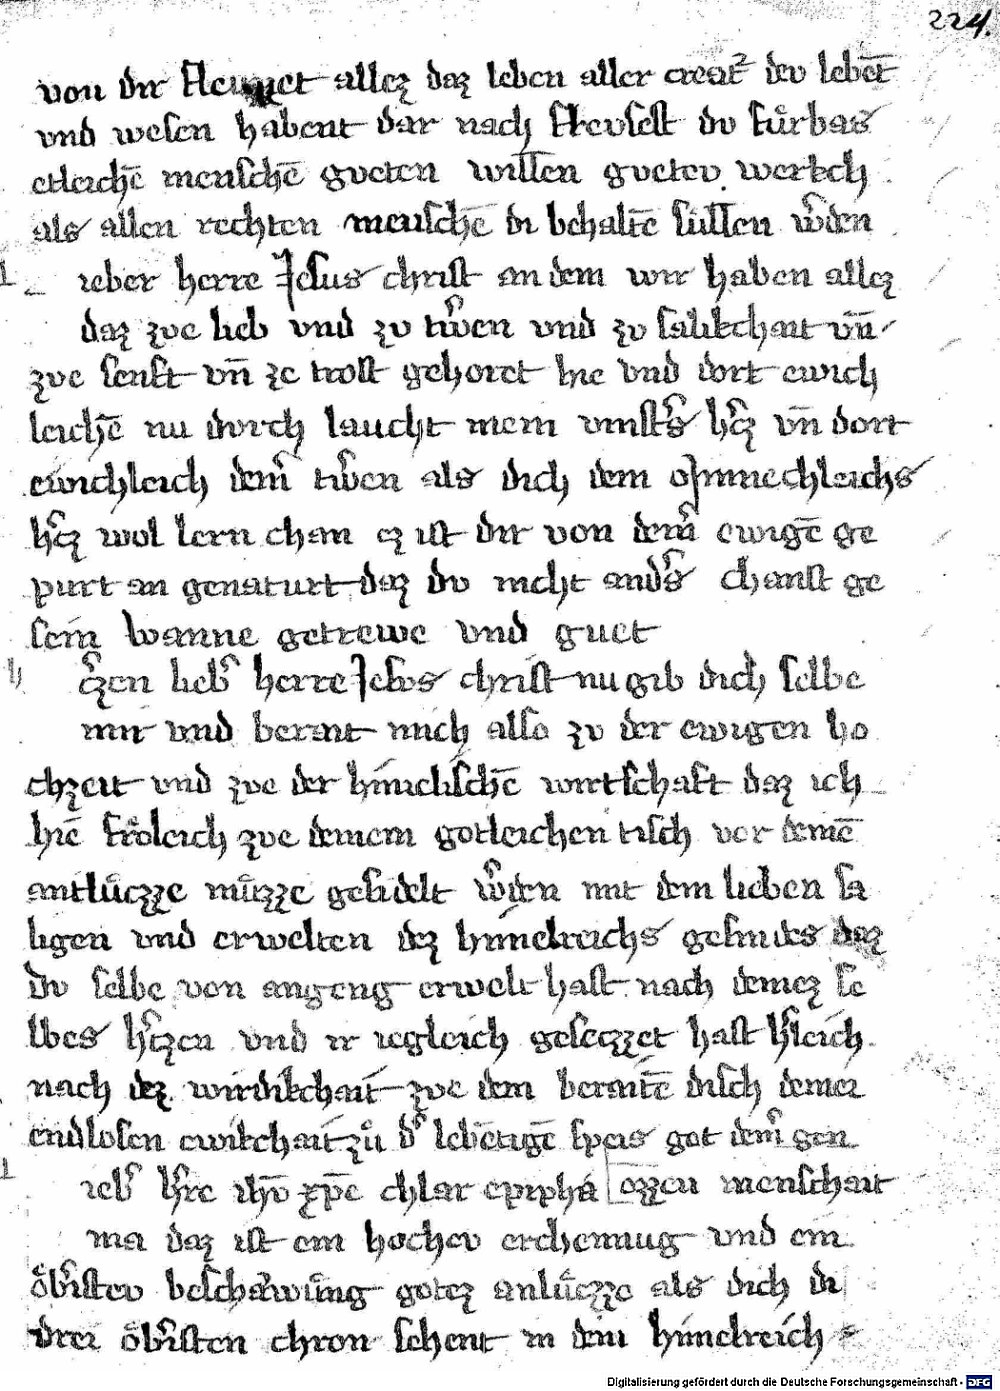 224.
von dir fleuzzet allez daz leben aller creatᵉ deu lebēt
vnd wesen habent dar nach fleusest du fuͤrbas
etleichē menschē gveten willen gvetev werkch
als allen rechten menschē di behaltē sullen wᵉden
l ieber herre Jesus christ an dem wir haben allez
daz zve lieb vnd zv trᵉwen vnd zv salikchait vn̄
zve senft vn̄ ze trost gehoret hie vnd dort ewich
leichē nu dvrch laucht mein vinstᵉs hᵉcz vn̄ dort
ewichleich deinᵉ trᵉwen als dich dein minnechleichs
hᵉcz wol lern chan ez ist dir von deinᵉ ewigē ge
purt an genaturt daz dv nicht andᵉs chanst ge
sein wanne getrewe vnd guet
h ᵉczen liebᵉ herre Jesvs christ nu gib dich selbe
mir vnd berait mich also zv der ewigen ho
chzeit vnd zve der himelischē wirtschaft daz ich
hie froͤleich zve deinem gotleichen tisch vor deinē
antluͤczze muͤzze gesidelt wᵉden mit dem lieben sa
ligen vnd erwelten dez himelreichs gesindes daz
dv selbe von angeng erwelt hast nach deinez se
lbes hᵉczen vnd ir iegleich geseczzet hast hᵉleich
nach dez wirdikchait zve dem beraitē disch deiner
endlosen ewikchait zuͦ dᵉ lebētigē speis got deinᵉ gen
l iebᵉ hᵉre ihū xpe chlar epipha ozzen menschait
nia daz ist ein hochev erchennug vnd ein
oͤbᵉistev beschawuͤng gotez anluͤczze als dich di
drei oͤbᵉisten chron sehent in dem himelreich
Digitalisierung gefördert durch die Deutsche Forschungsgemeinschaft - DFG